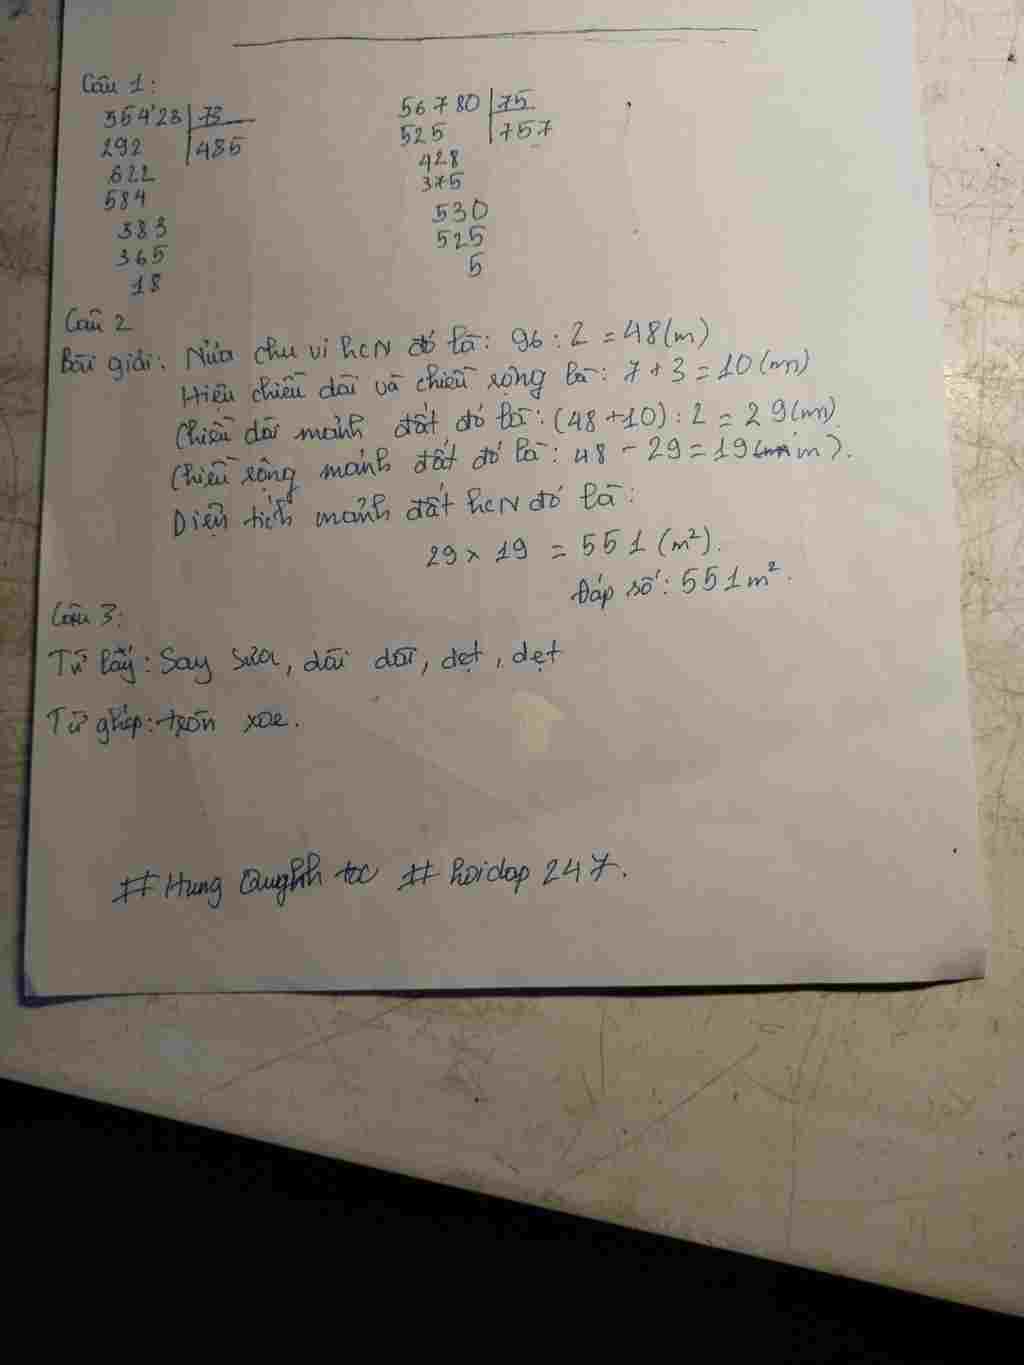 Câu 1:
35423 73
292 485
622
584
383
365
18
56780 75
525 757
428
375
530
525
5
Câu 2
Bài giải: Nửa chu vi hcN đó là: 96 : 2 = 48 (m)
Hiệu chiều dài và chiều rộng là: 7 + 3 = 10 (m)
Chiều dài mảnh đất đó là: (48 + 10) : 2 = 29 (m)
Chiều rộng mảnh đất đó là: 48 - 29 = 19 (m).
Diện tích mảnh đất hcN đó là:
29 x 19 = 551 (m²).
Đáp số: 551 m².
Câu 3:
Từ láy: Say sưa, dài dài, dẹt, dẹt
Từ ghép: tròn xoe.
# Hung toc # hoidap 247.